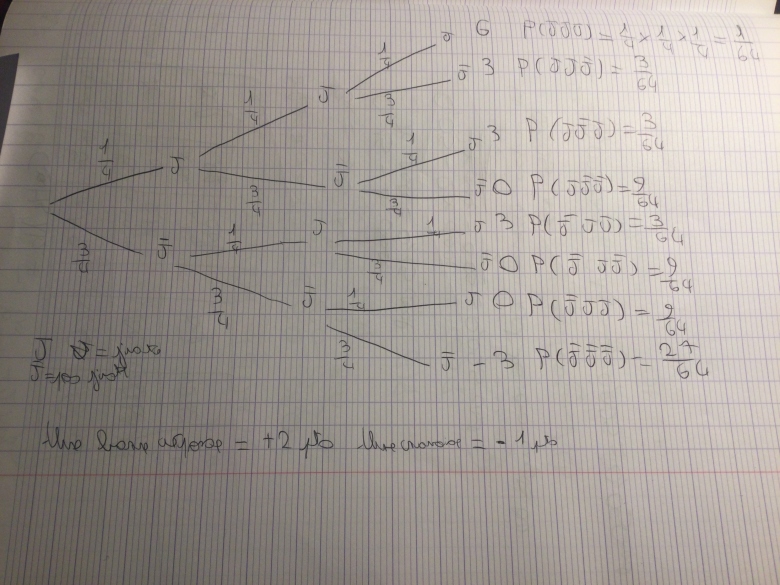 1/4 J 6 P(JJJ) = 1/4 × 1/4 × 1/4 = 1/64
1/4 J 3/4 J̄ 3 P(JJJ̄) = 3/64
1/4 J 1/4 J 3 P(JJ̄J) = 3/64
3/4 J̄ 3/4 J̄ 0 P(JJ̄J̄) = 9/64
3/4 J̄ 1/4 J 1/4 J 3 P(J̄JJ) = 3/64
3/4 J̄ 0 P(J̄JJ̄) = 9/64
3/4 J̄ 1/4 J 0 P(J̄J̄J) = 9/64
3/4 J̄ - 3 P(J̄J̄J̄) = 27/64
J = juste
J̄ = pas juste
Une bonne réponse = +2 pts Une = -1 pts